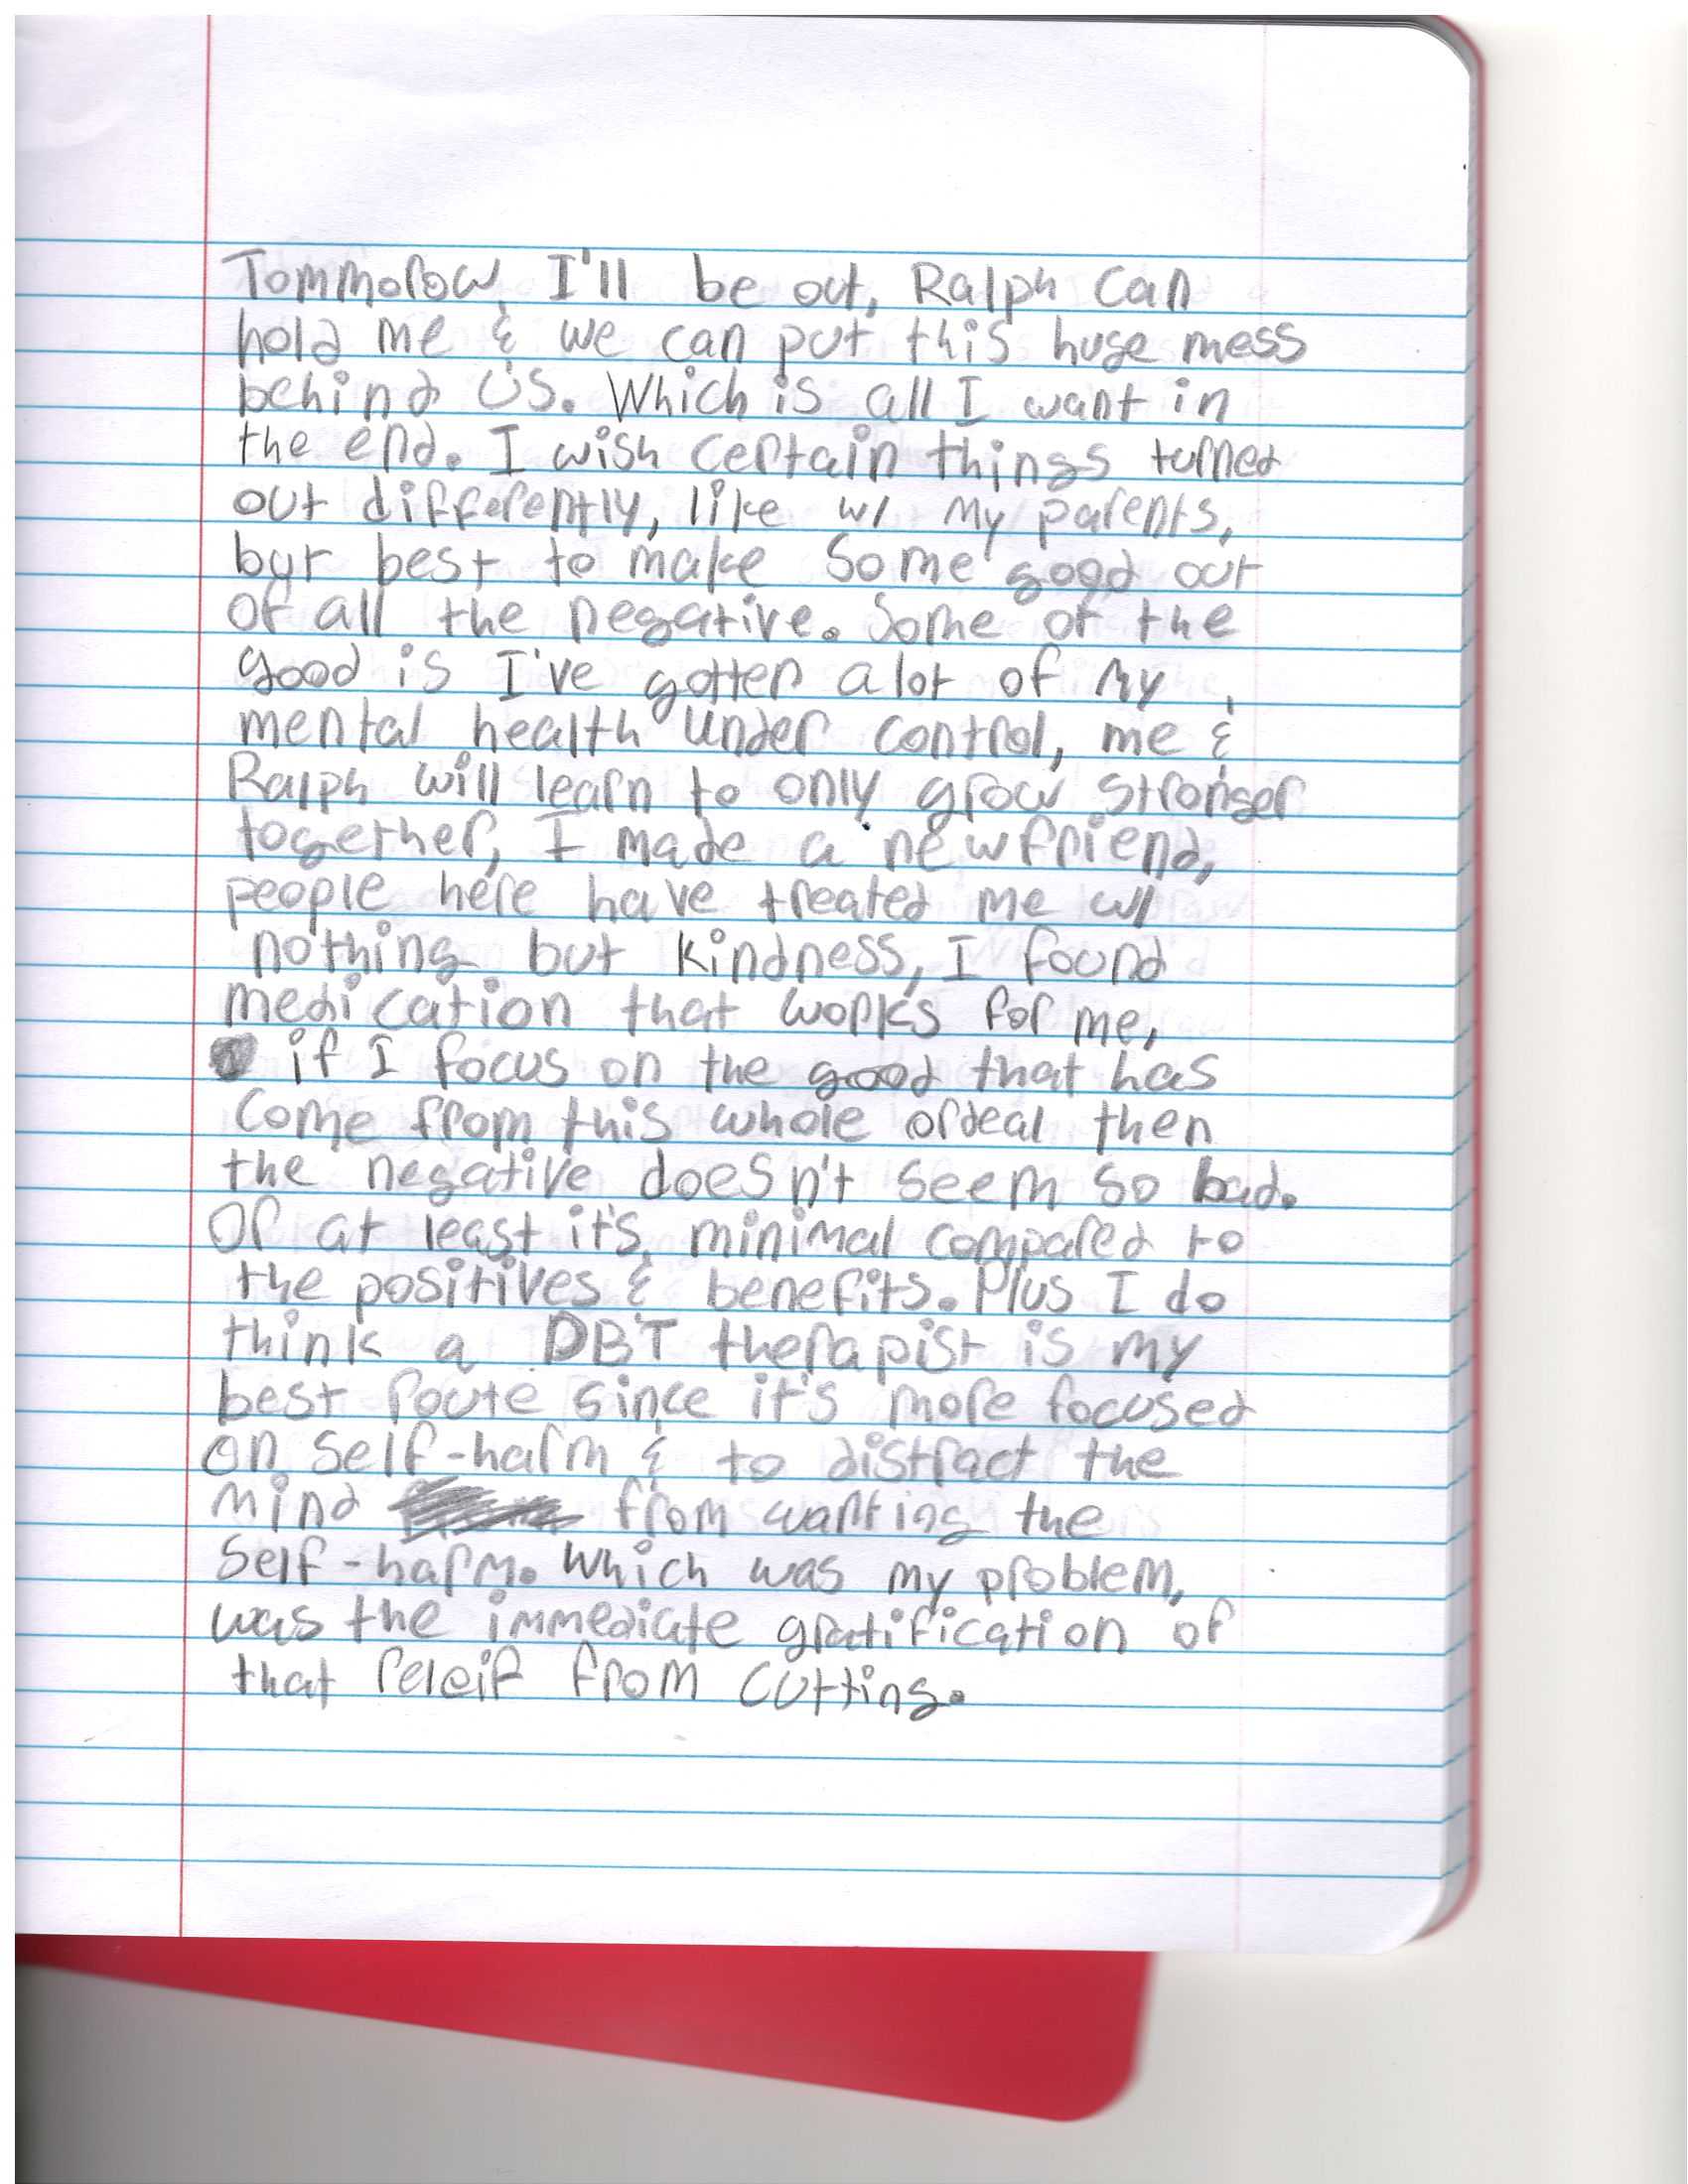 Tommorow I'll be out, Ralph can
hold me & we can put this huge mess
behind us. Which is all I want in
the end. I wish certain things turned
out differently, like w/ my parents,
byt best to make some good out
of all the negative. Some of the
good is I've gotten alot of my
mental health under control, me &
Ralph will learn to only grow stronger
together, I made a new friend,
people here have treated me w/
nothing but kindness, I found
medication that works for me,
if I focus on the good that has
come from this whole ordeal then
the negative doesn't seem so bad.
Or at least it's minimal compared to
the positives & benefits. Plus I do
think a DBT therapist is my
best route since it's more focused
on self-harm & to distract the
mind from wanting the
self-harm. Which was my problem,
was the immediate gratification of
that releif from cutting.